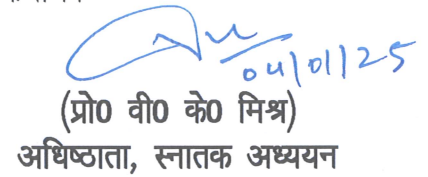 04/01/25
(प्रो0 वी0 के0 मिश्र)
अधिष्ठाता, स्नातक अध्ययन